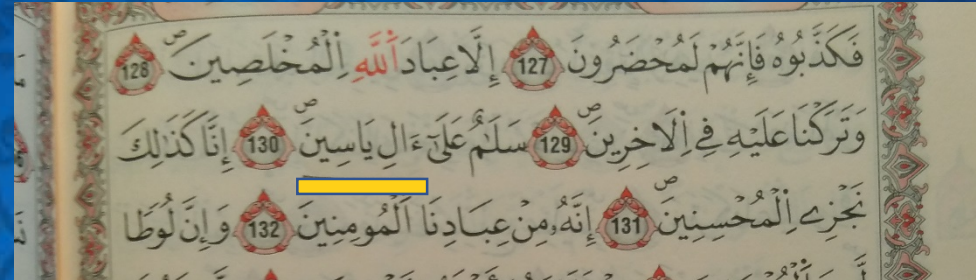 فَكَذَّبُوهُ فَإِنَّهُمْ لَمُحْضَرُونَ 127 إِلَّا عِبَادَ اَللَّهِ اِلْمُخْلَصِينَ ۖ 128
وَتَرَكْنَا عَلَيْهِ فِي اِلَاخِرِينَ ۖ 129 سَلَٰمٌ عَلَىٰٓ ءَالِ يَاسِينَ ۖ 130 إِنَّا كَذَٰلِكَ
نَجْزِے اِلْمُحْسِنِينَ ۖ 131 إِنَّهُۥ مِنْ عِبَادِنَا اَلْمُومِنِينَ 132 وَإِنَّ لُوطًا